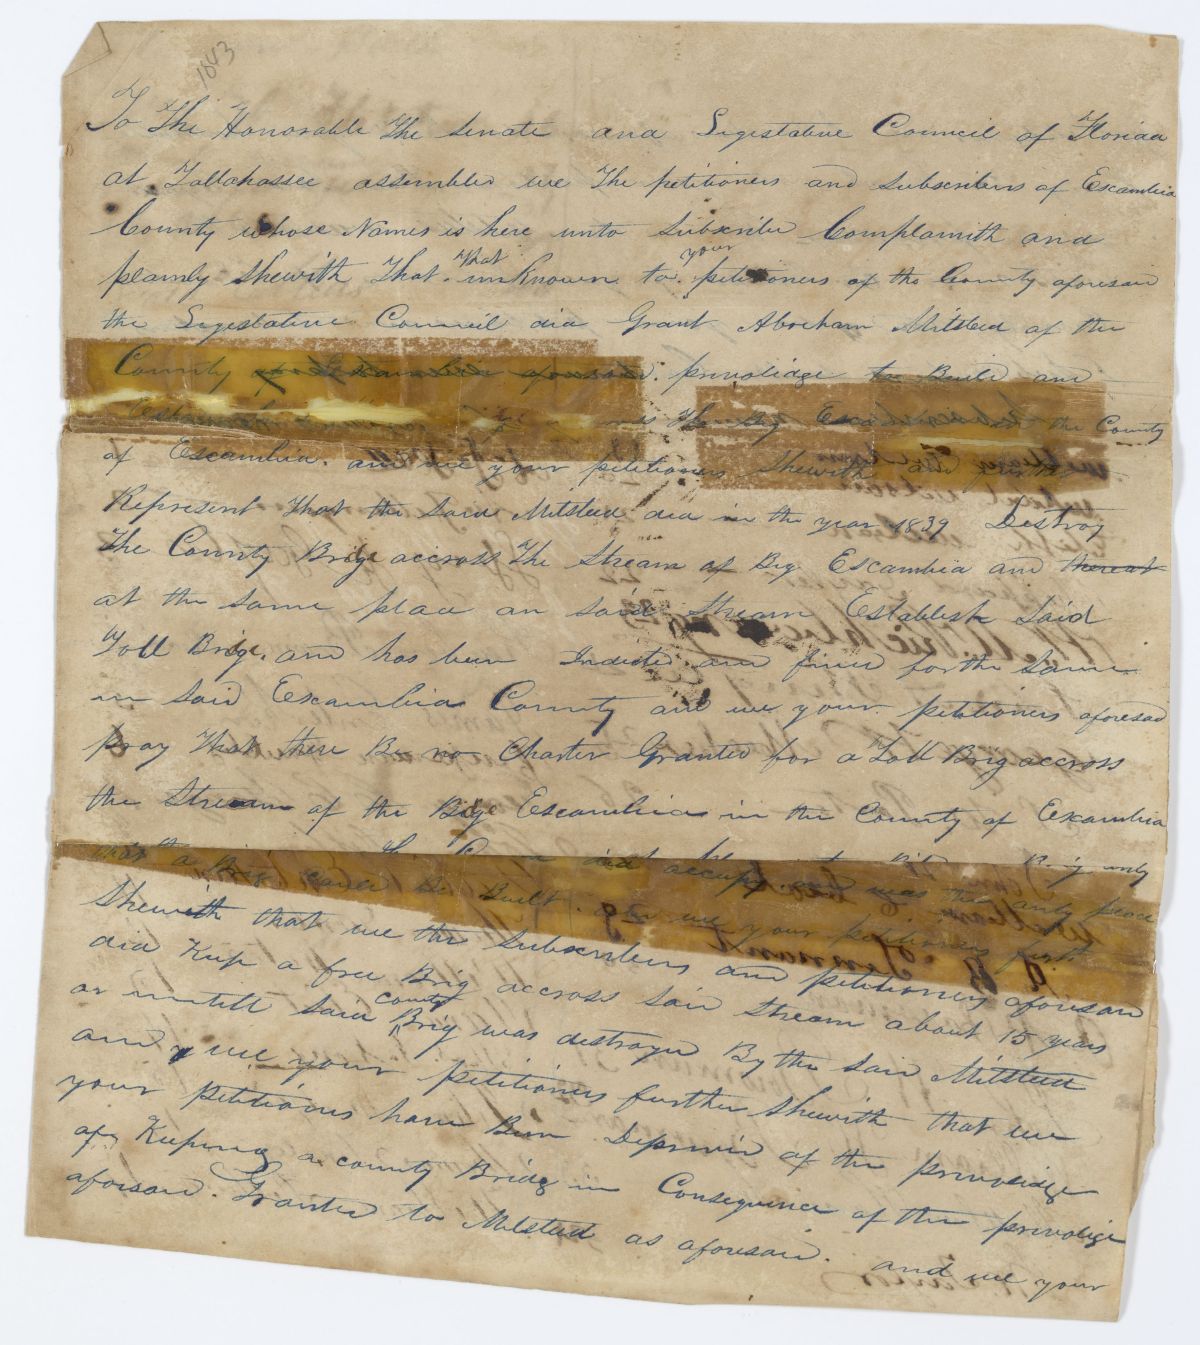 1843
To The Honorable The Senate and Legislative Council of Florida
at Tallahassee assembled we The petitioners and subscribers of Escambia
County whose Names is here unto Subscribe Complainith and
plainly Shewith That that unknown to your petitioners of the County aforesaid
the Legislative Council did Grant Abreham Milsted of the
County of Escambia aforesaid privolidge to Build and
the Big Escambia the County
of Escambia. and we your petitioners Shewith and further
Represent That the Said Milsted did in the year 1839 Destroy
The County Brige accross The Stream of Big Escambia and thereat
at the same place on said Stream Establish Said
Toll Brige. and has been Indicted and fined for the Same
in said Escambia County and we your petitioners aforesad
pray That there Be no Charter Granted for a Toll Brig accross
the Stream of the Bige Escambia in the County of Escambia
that a Brig could Be Built. and we your petitioners furst
Shewith that we the Subscribers and petitioners aforesaid
did Keep a free Brig accross said Stream about 15 years
or untill said county Brig was destroyd By the said Milsted
and we your petitioners further Shewith that we
your petitions have Been Deprivd of the privolidge
of Keeping a county Bridg in Consequence of the privolige
aforesaid. Granted to Milsted as aforesaid. and we your